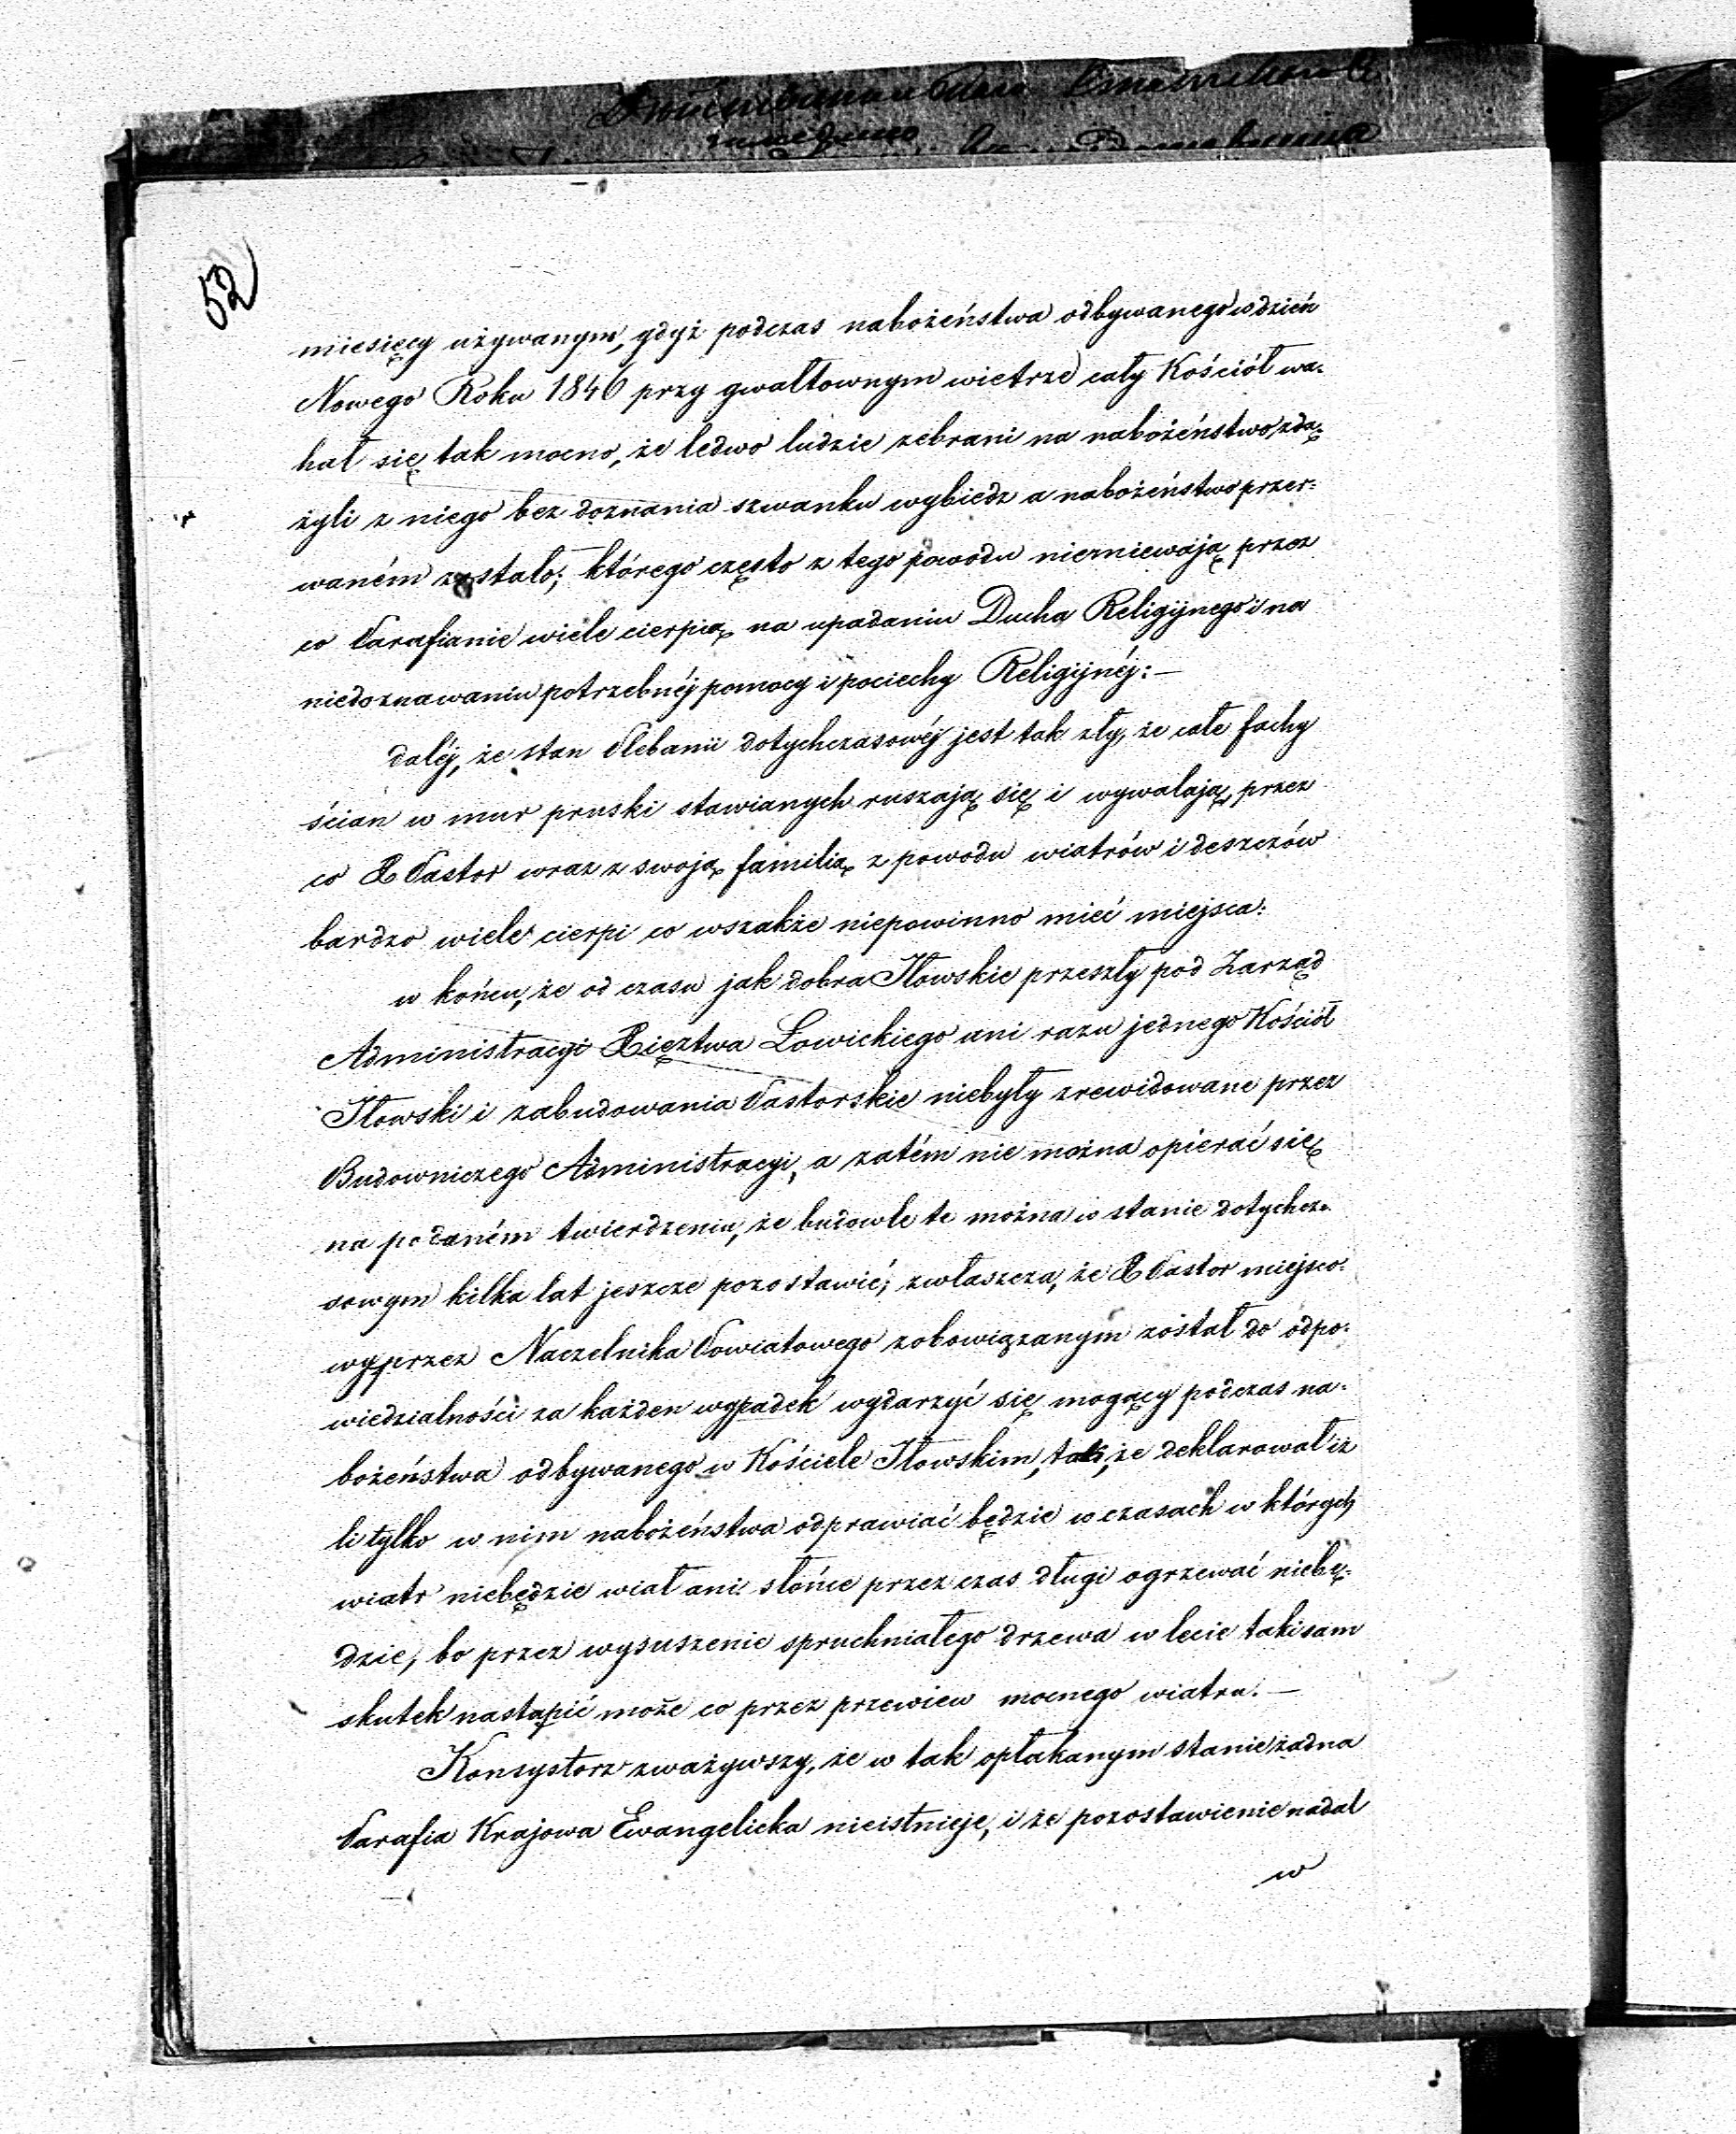 52
miesięcy używanym, gdyż podczas nabożeństwa odbywanego w dzień
Nowego Roku 1846 przy gwałtownym wietrze cały Kościół wa-
hał się tak mocno, że ledwo ludzie zebrani na nabożeństwo, zdą-
żyli z niego bez doznania szwanku wybiedz a nabożeństwo przer-
waném zostało; którego często z tego powodu niemiewają przez
co Parafianie wiele cierpią na upadaniu Ducha Religijnego i na
niedoznawaniu potrzebnéj pomocy i pociechy Religijnéj:—
daléj, że stan Plebanii dotychczasowéj jest tak zły, że całe fachy
ścian w mur pruski stawianych ruszają się i wywalają, przez
co X Pastor wraz z swoją familią z powodu wiatrów i deszczów
bardzo wiele cierpi co wszakże niepowinno mieć miejsca:
w końcu, że od czasu jak dobra Iłowskie przeszły pod Zarząd
Administracyi Xięztwa Łowickiego ani razu jednego Kościół
Iłowski i zabudowania Pastorskie niebyły zrewidowane przez
Budowniczego Administracyi, a zatém nie można opierać się
na podaném twierdzeniu, że budowle te można w stanie dotychcza-
sowym kilka lat jeszcze pozostawić; zwłaszcza, że X Pastor miejsco-
wy przez Naczelnika Powiatowego zobowiązanym został do odpo-
wiedzialności za każden wypadek wydarzyć się mogący podczas na-
bożeństwa odbywanego w Kościele Iłowskim, tak, że deklarował iż
li tylko w nim nabożeństwa odprawiać będzie w czasach w których
wiatr niebędzie wiał ani słońce przez czas długi ogrzewać niebę-
dzie, bo przez wysuszenie spruchniałego drzewa w lecie taki sam
skutek nastąpić może co przez przewiew mocnego wiatru.—
Konsystorz zważywszy, że w tak opłakanym stanie żadna
Parafia Krajowa Ewangelicka nieistnieje, i że pozostawienie nadal
w